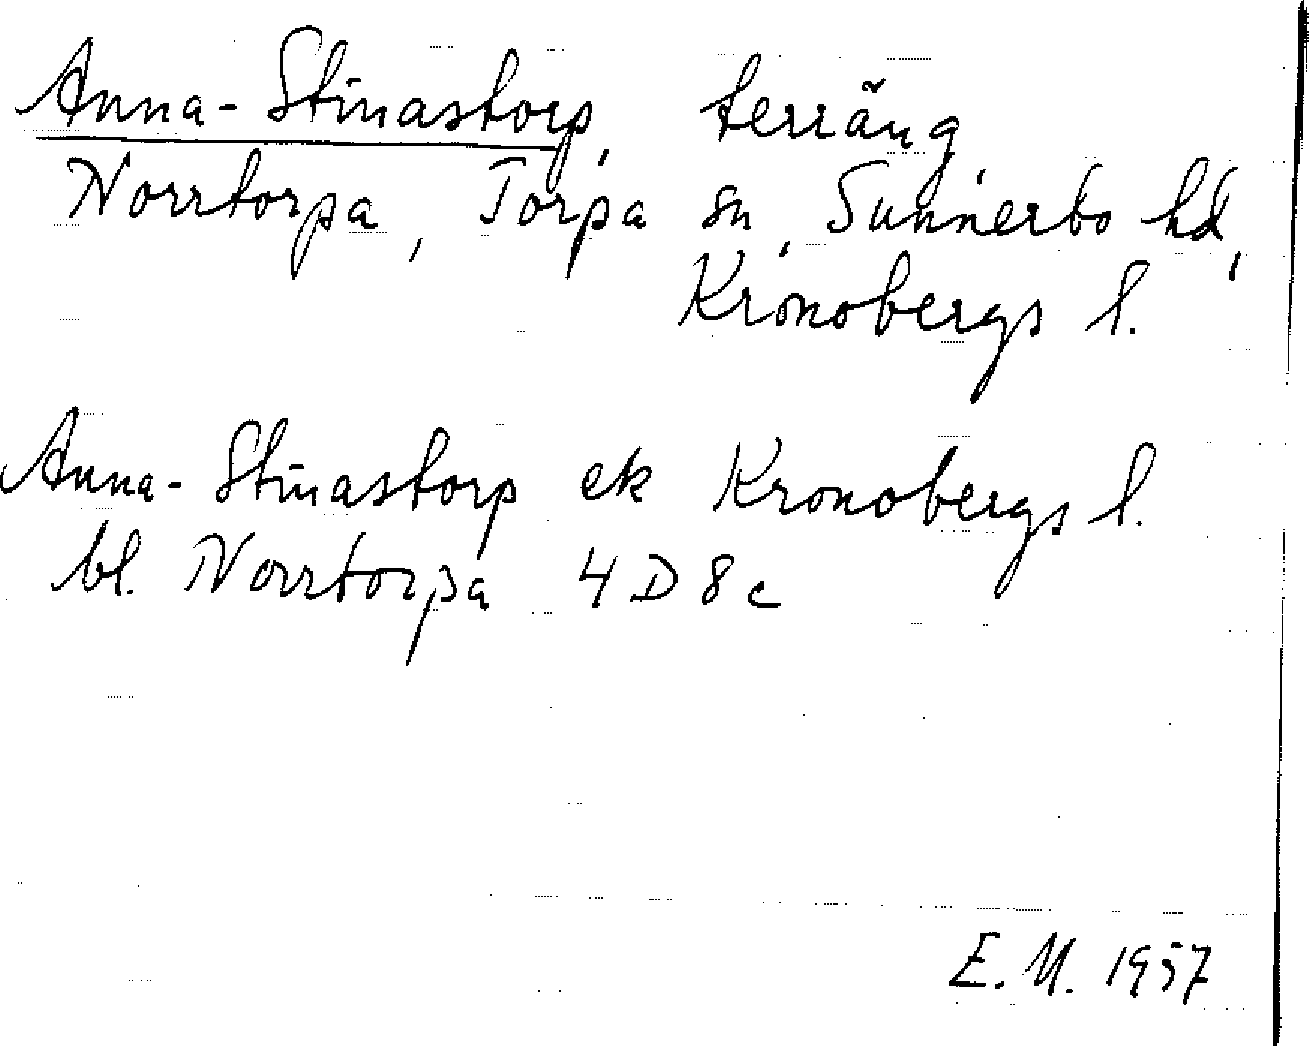 Anna-Stinastorp, terräng
Norrtorpa, Torpa sn, Sunnerbo hd,
Kronobergs l.
Anna-Stinastorp ek Kronobergs l.
bl. Norrtorpa 4 D 8 c
E. M. 1957